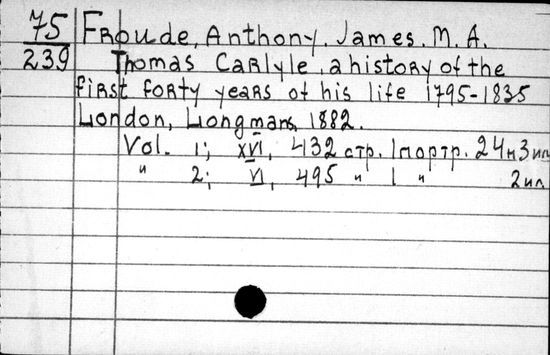 75 Froude, Anthony. James. M. A.
239 Thomas Carlyle, a history of the
first forty years of his life 1795-1835
London, Longmans, 1882.
Vol. 1; XVI, 432 стр. 1 портр. 24 н 3 ил
" 2; VI, 495 " 1 " 2 ил.